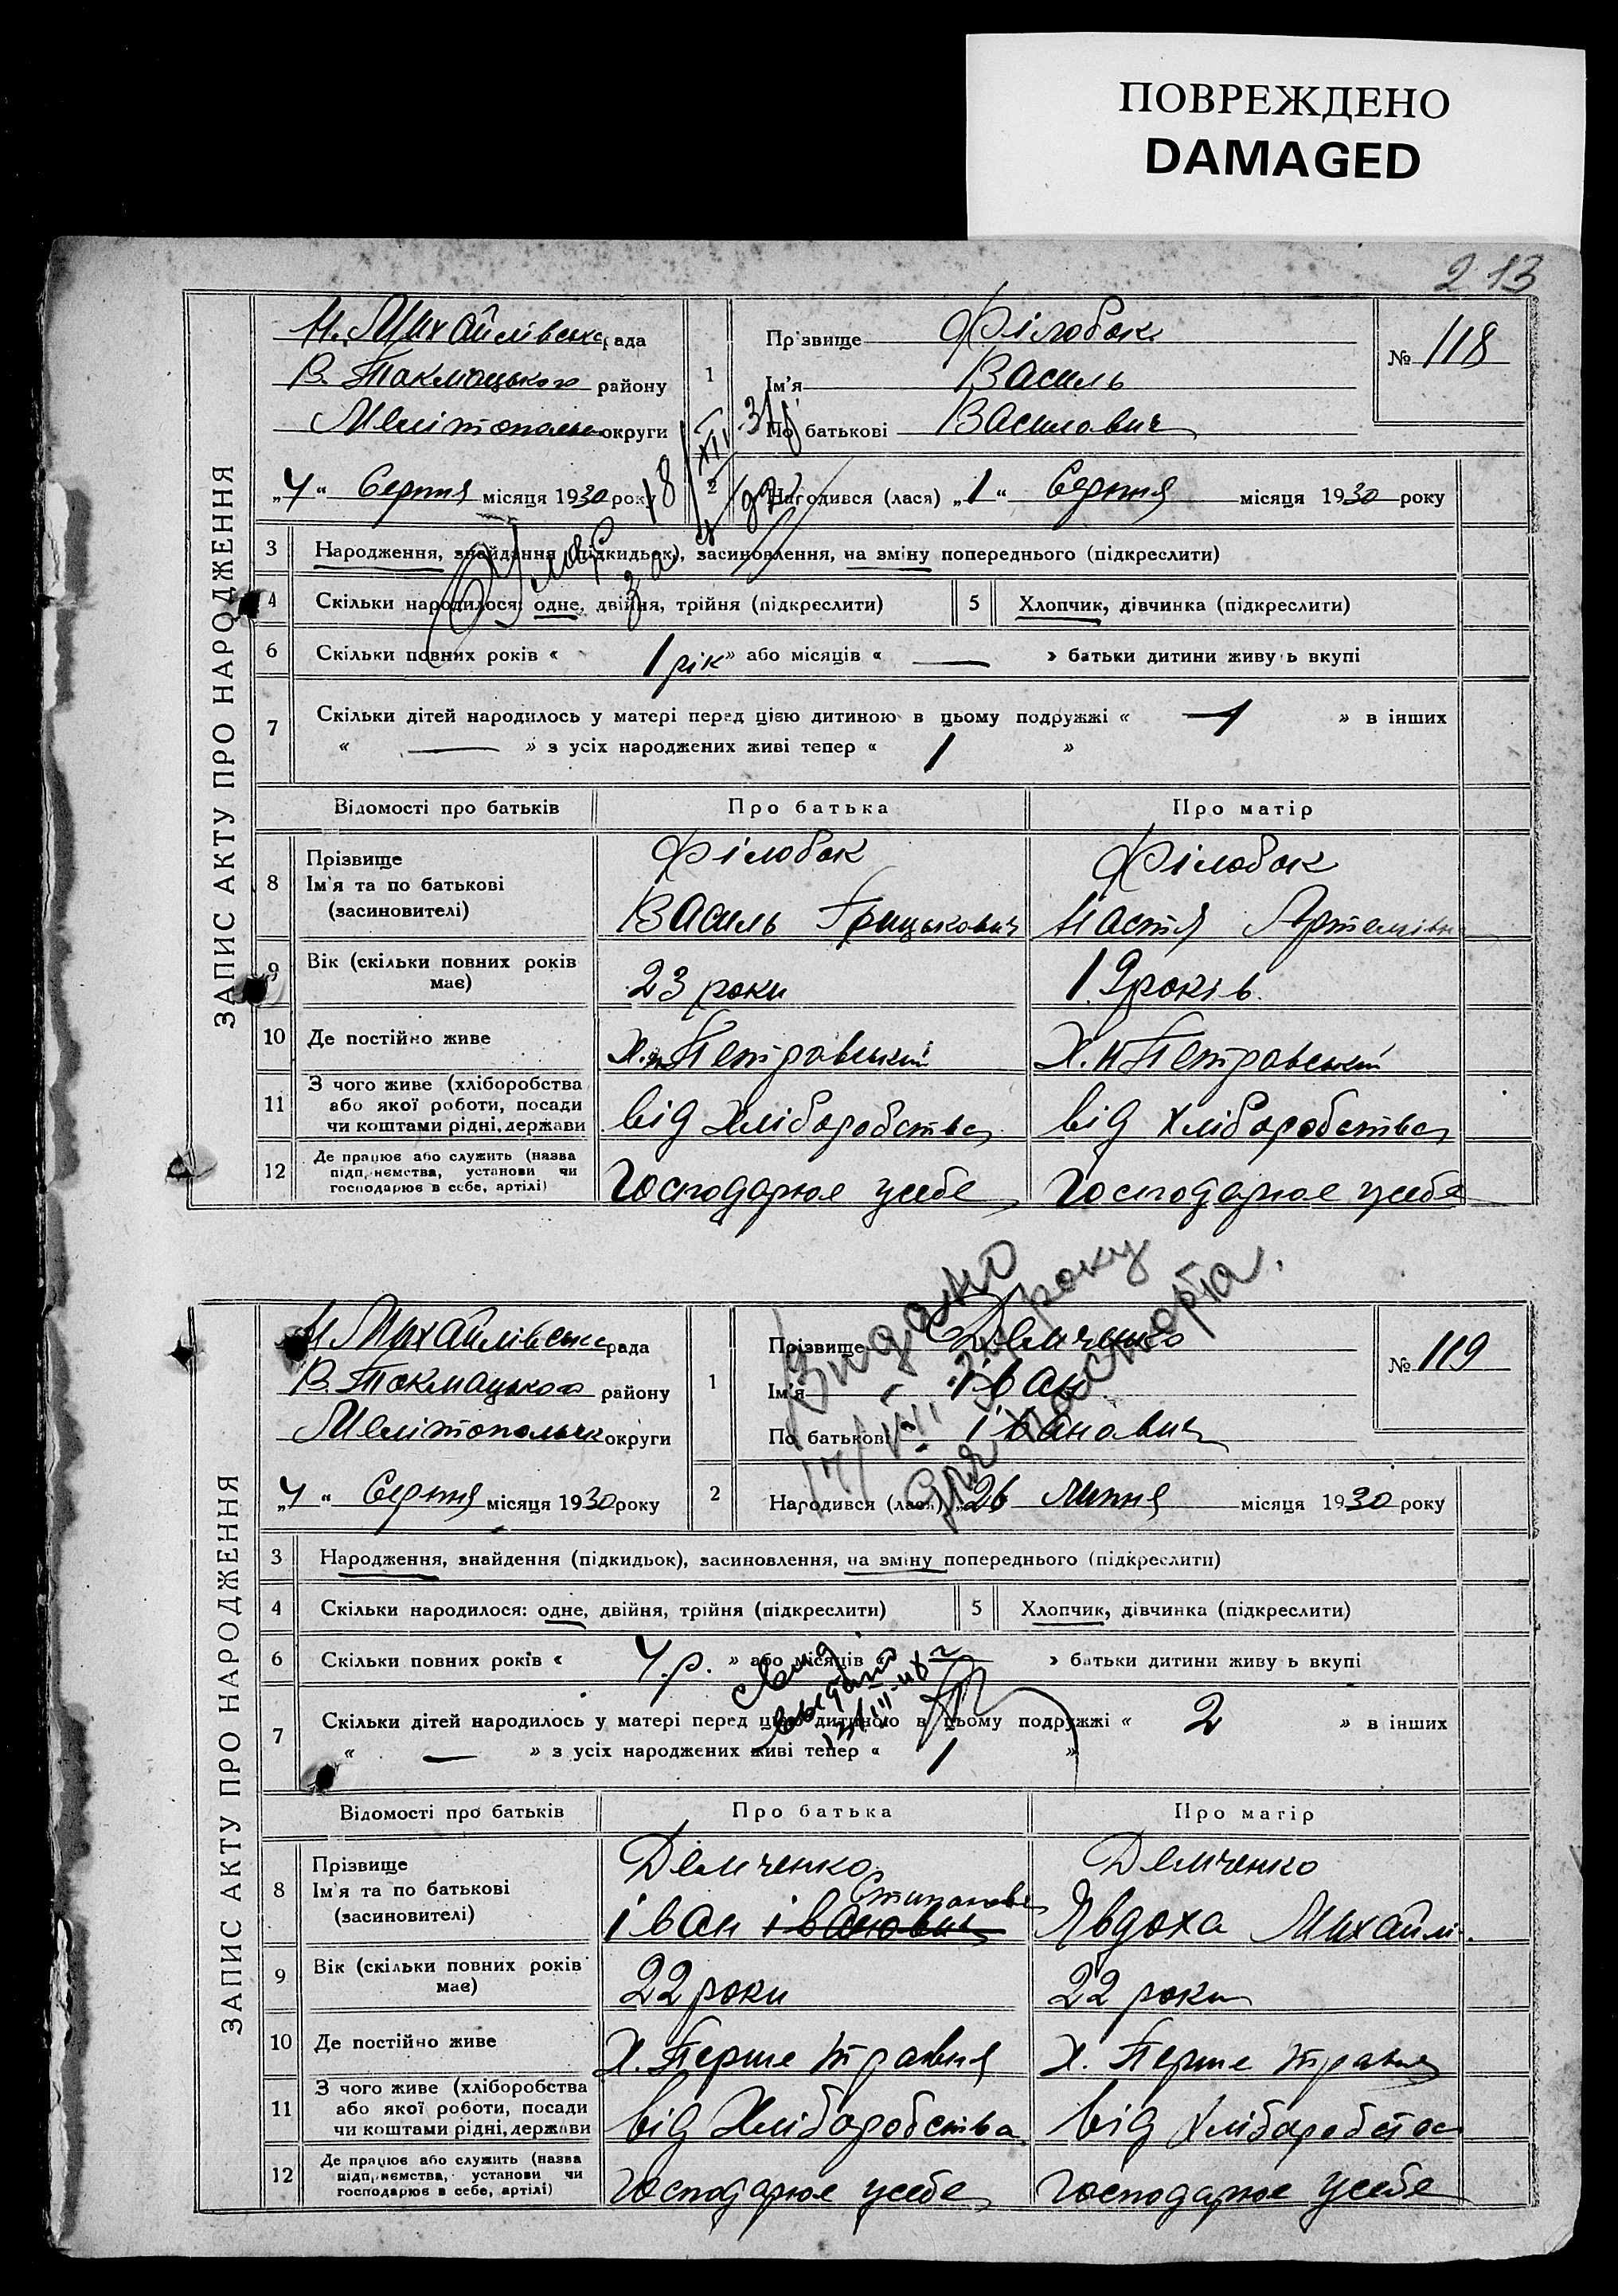 ПОВРЕЖДЕНО
DAMAGED
213
ЗАПИС АКТУ ПРО НАРОДЖЕННЯ
Н. Михайлівська рада
В. Токмацького району
Мелітопольськ округи
„4“ Серпня місяця 1930 року
1
Прізвище Філобок
Ім'я Василь
По батькові Василович
№ 118
2
Народився (лася) „1“ Серпня місяця 1930 року
3 Народження, знайдення (підкидьок), засиновлення, на зміну попереднього (підкреслити)
4 Скільки народилося: одне, двійня, трійня (підкреслити) 5 Хлопчик, дівчинка (підкреслити)
6 Скільки повних років « 1 рік » або місяців « — » батьки дитини живуть вкупі
7 Скільки дітей народилось у матері перед цією дитиною в цьому подружжі « 1 » в інших
« — » з усіх народжених живі тепер « 1 »
Відомості про батьків Про батька Про матір
8 Прізвище Філобок Філобок
Ім'я та по батькові Василь Грицькович Настя Артемівн
(засиновителі)
9 Вік (скільки повних років має) 23 роки 19 років
10 Де постійно живе Х. н Петровський Х. н Петровський
11 З чого живе (хліборобства або якої роботи, посади чи коштами рідні, держави від Хліборобства від хліборобства
12 Де працює або служить (назва підприємства, установи чи господарює в себе, артілі) Господарює усебе Господарює усебе
Видано
17/VIII року
для паспорта.
ЗАПИС АКТУ ПРО НАРОДЖЕННЯ
Н. Михайлівська рада
В. Токмацького району
Мелітопольськ округи
„4“ Серпня місяця 1930 року
1
Прізвище Демченко
Ім'я Іван
По батькові Іванович
№ 119
2
Народився (лася) „26 липня місяця 1930 року
3 Народження, знайдення (підкидьок), засиновлення, на зміну попереднього (підкреслити)
4 Скільки народилося: одне, двійня, трійня (підкреслити) 5 Хлопчик, дівчинка (підкреслити)
6 Скільки повних років « 4 р. » або місяців « » батьки дитини живуть вкупі
7 Скільки дітей народилось у матері перед цією дитиною в цьому подружжі « 2 » в інших
« — » з усіх народжених живі тепер « 1 »
Відомості про батьків Про батька Про матір
8 Прізвище Демченко Демченко
Ім'я та по батькові іван іванович Степанов Явдоха Михайлі
(засиновителі)
9 Вік (скільки повних років має) 22 роки 22 роки
10 Де постійно живе Х. Перше травня Х. Перше травня
11 З чого живе (хліборобства або якої роботи, посади чи коштами рідні, держави від Хліборобства від хліборобства
12 Де працює або служить (назва підприємства, установи чи господарює в себе, артілі) Господарює усебе Господарює усебе